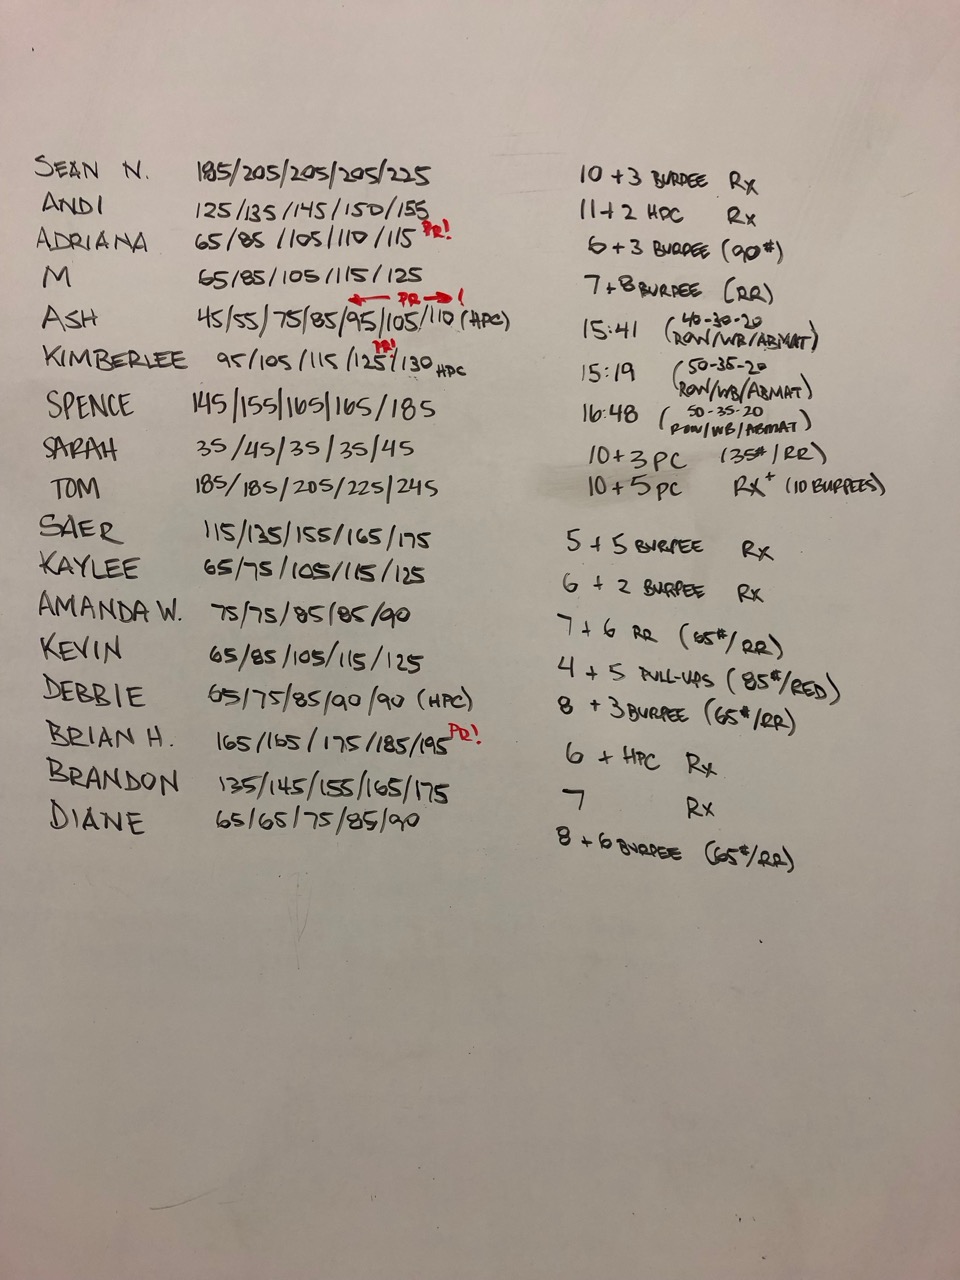 SEAN N. 185/205/205/205/225 10 + 3 BURPEE Rx
ANDI 125/135/145/150/155 11 + 2 HPC Rx
ADRIANA 65/85/105/110/115 PR! 6 + 3 BURPEE (90#)
M 65/85/105/115/125 7 + 8 BURPEE (RR)
← PR → !
ASH 45/55/75/85/95/105/110 (HPC) 15:41 (40-30-20
ROW/WB/ABMAT)
PR!
KIMBERLEE 95/105/115/125/130 HPC 15:19 (50-35-20
ROW/WB/ABMAT)
SPENCE 145/155/165/165/185 16:48 (50-35-20
ROW/WB/ABMAT)
SARAH 35/45/35/35/45 10 + 3 PC (35#/RR)
TOM 185/185/205/225/245 10 + 5 PC Rx+ (10 BURPEES)
SAER 115/135/155/165/175 5 + 5 BURPEE Rx
KAYLEE 65/75/105/115/125 6 + 2 BURPEE Rx
AMANDA W. 75/75/85/85/90 7 + 6 RR (65#/RR)
KEVIN 65/85/105/115/125 4 + 5 PULL-UPS (85#/RED)
DEBBIE 65/75/85/90/90 (HPC) 8 + 3 BURPEE (65#/RR)
BRIAN H. 165/165/175/185/195 PR! 6 + HPC Rx
BRANDON 135/145/155/165/175 7 Rx
DIANE 65/65/75/85/90 8 + 6 BURPEE (65#/RR)